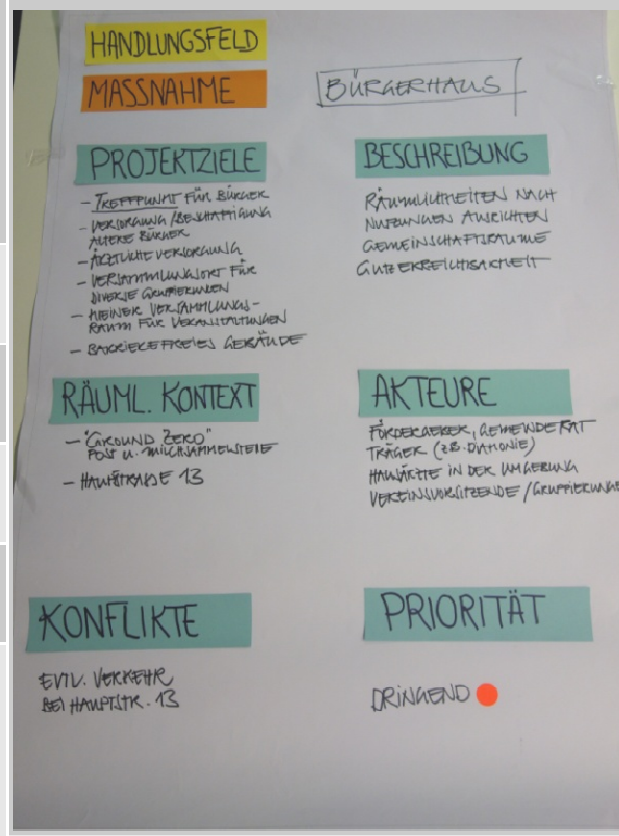 HANDLUNGSFELD
MASSNAHME
BÜRGERHAUS
PROJEKTZIELE
- TREFFPUNKT FÜR BÜRGER
- VERSORGUNG/BESCHÄFTIGUNG
ÄLTERE BÜRGER
- ÄRZTLICHE VERSORGUNG
- VERSAMMLUNGSORT FÜR
DIVERSE GRUPPIERUNGEN
- KLEINER VERSAMMLUNGS-
RAUM FÜR VERANSTALTUNGEN
- BARRIEREFREIES GEBÄUDE
BESCHREIBUNG
RÄUMLICHKEITEN NACH
NUTZUNGEN AUSRICHTEN
GEMEINSCHAFTSRÄUME
GUTE ERREICHBARKEIT
RÄUML. KONTEXT
- "GROUND ZERO"
POST U. MILCHSAMMELSTELLE
- HAUPTSTRASSE 13
AKTEURE
FÖRDERGEBER, GEMEINDERAT
TRÄGER (z.B. DIAKONIE)
HAUSÄRZTE IN DER UMGEBUNG
VEREINSVORSITZENDE/GRUPPIERUNGE
KONFLIKTE
EVTL. VERKEHR
BEI HAUPTSTR. 13
PRIORITÄT
DRINGEND